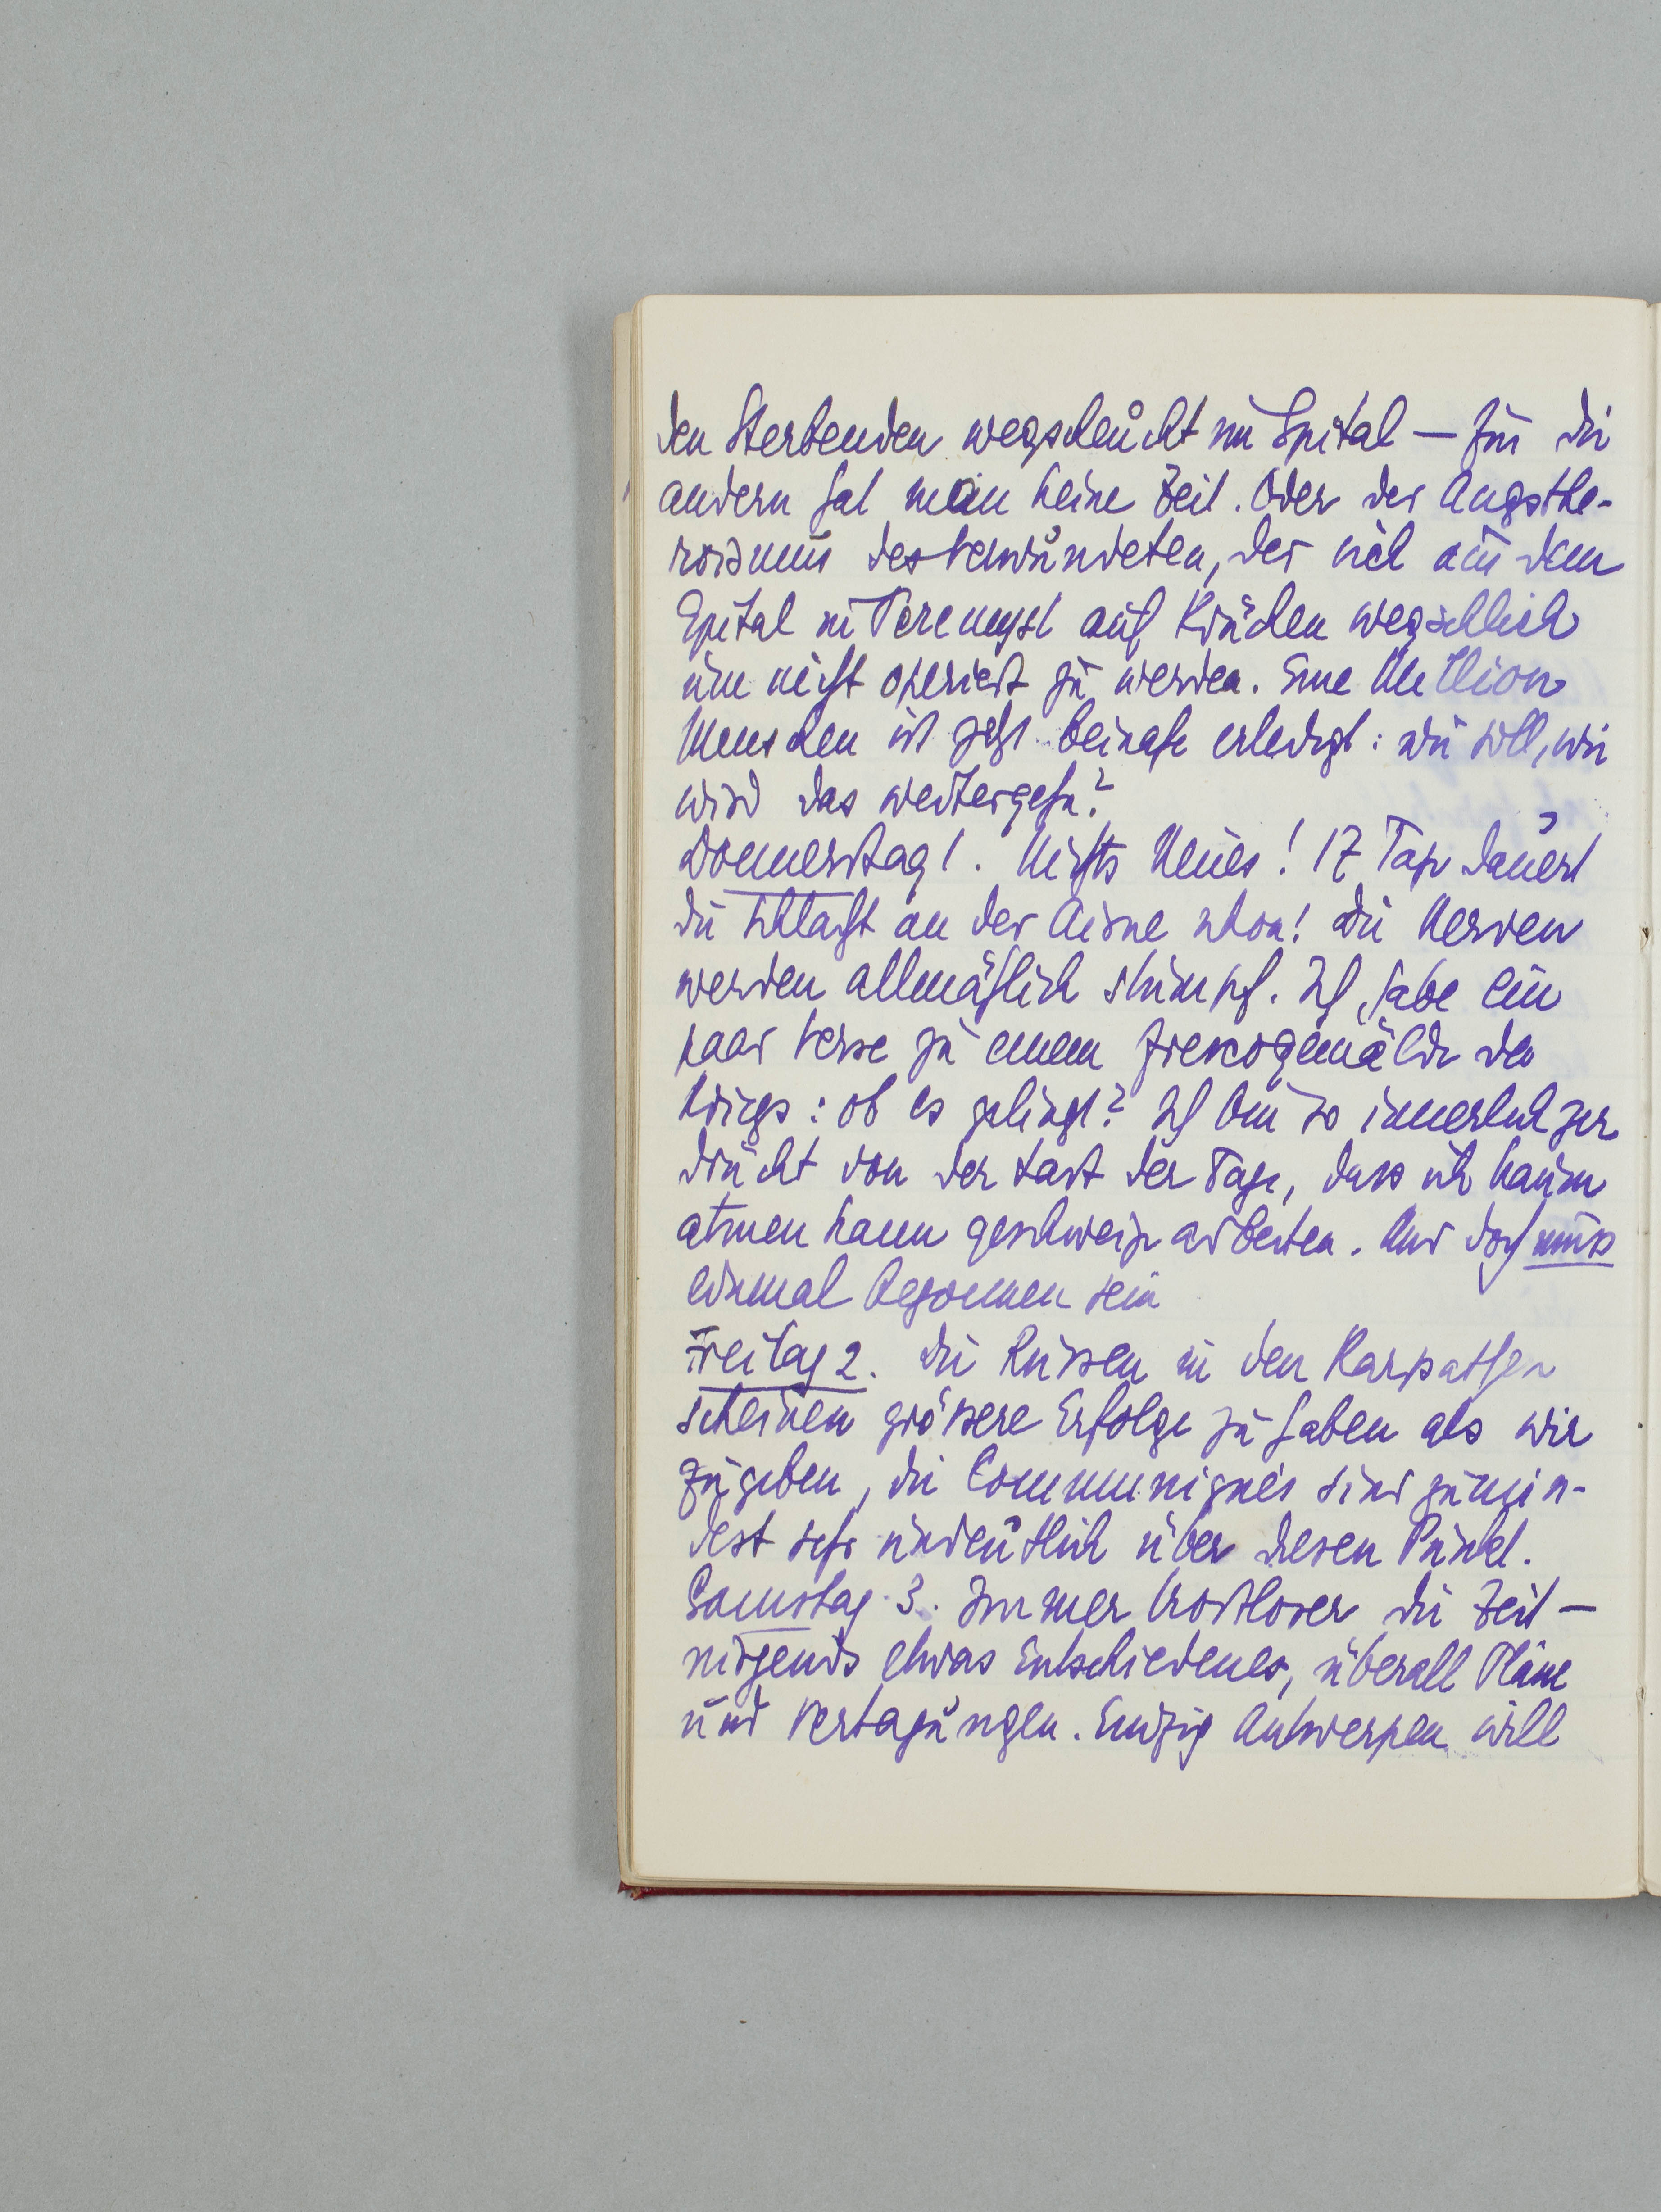 den Sterbenden wegscheucht im Spital – für die
andern hat man keine Zeit. Oder der Angsthe-
roismus des Verwundeten, der sich aus dem
Spital in Peremysl auf Krücken wegschlich
um nicht operiert zu werden. Eine Million
Menschen ist jetzt beinahe erledigt: wie soll, wie
wird das weitergehn?
Donnerstag 1. Nichts Neues! 17 Tage dauert
die Schlacht an der Aisne schon! Die Nerven
werden allmählich stumpf. Ich habe ein
paar Verse zu einem Freskogemälde des
Kriegs: ob es gelingt? Ich bin so innerlich zer
drückt von der Last der Tage, dass ich kaum
atmen kann geschweige arbeiten. Und doch muss
einmal begonnen sein
Freitag 2. Die Russen in den Karpathen
scheinen grössere Erfolge zu haben als wir
zugeben, die Communiqués sind zumin-
dest sehr undeutlich über diesen Punkt.
Samstag 3. Immer trostloser die Zeit –
nirgends etwas Entschiedenes, überall Pläne
und Vertagungen. Einzig Antwerpen will